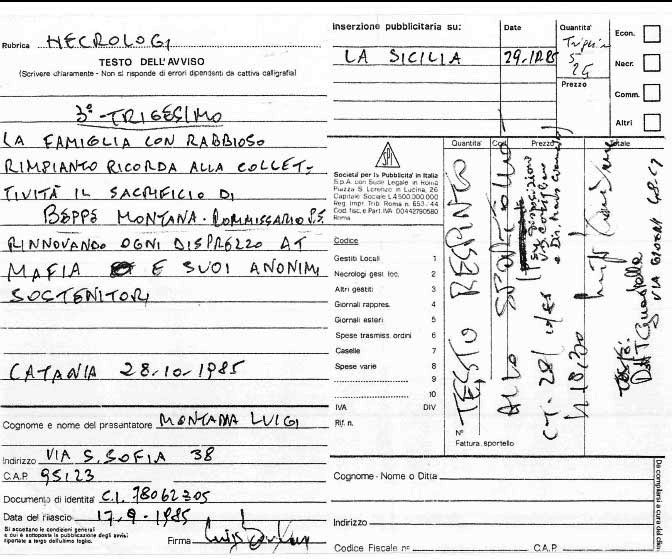 Rubrica NECROLOGI
TESTO DELL'AVVISO
(Scrivere chiaramente - Non si risponde di errori dipendenti da cattiva calligrafia)
3° TRIGESIMO
LA FAMIGLIA CON RABBIOSO
RIMPIANTO RICORDA ALLA COLLET-
TIVITÀ IL SACRIFICIO DI
BEPPE MONTANA - COMMISSARIO P.S.
RINNOVANDO OGNI DISPREZZO AT
MAFIA E SUOI ANONIMI
SOSTENITORI
CATANIA 28.10.1985
Cognome e nome del presentatore MONTANA LUIGI
Indirizzo VIA S. SOFIA 38
C.A.P. 95123
Documento di identità C.I. 78062305
Data del rilascio 17.9.1985
Si accettano le condizioni generali
a cui è sottoposta la pubblicazione degli avvisi
riportate a tergo dell'ultimo foglio.
Firma
Inserzione pubblicitaria su:
LA SICILIA
Data
29.10.85
Quantità
5
2G
Prezzo
Econ.
Necr.
Comm.
Altri
SPI
Società per la Pubblicità in Italia
S.p.A. con Sede Legale in Roma
Piazza S. Lorenzo in Lucina, 26
Capitale Sociale L. 4.500.000.000
Reg. Impr. Trib. Roma n. 653/44
Cod. fisc. e Part. IVA 00442790580
Roma
Codice
Gestiti Locali 1
Necrologi gest. loc. 2
Altri gestiti 3
Giornali rappres. 4
Giornali esteri 5
Spese trasmiss. ordini 6
Caselle 7
Spese varie 8
9
10
IVA DIV
Rif. n.
Quantità Cod. Prezzo Totale
TESTO RESPINTO
ALLO SPORTELLO
CT. 28/10/85
h 18,30
N°
Fattura sportello
Cognome - Nome o Ditta
Indirizzo
Codice Fiscale n° C.A.P.